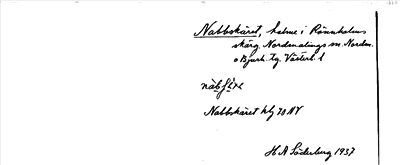 Nabbskäret, holme i Rönnholms
skärg. Nordmalings sn. Nordm.
o Bjurh. tg. Västerb. l
Nabbskäret kbg 70 NV
H A Söderberg 1937